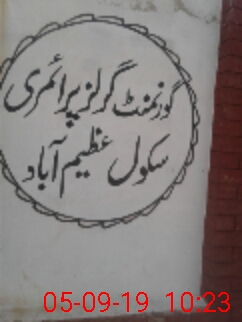 گورنمنٹ گرلز پرائمری
سکول عظیم آباد
05-09-19 10:23